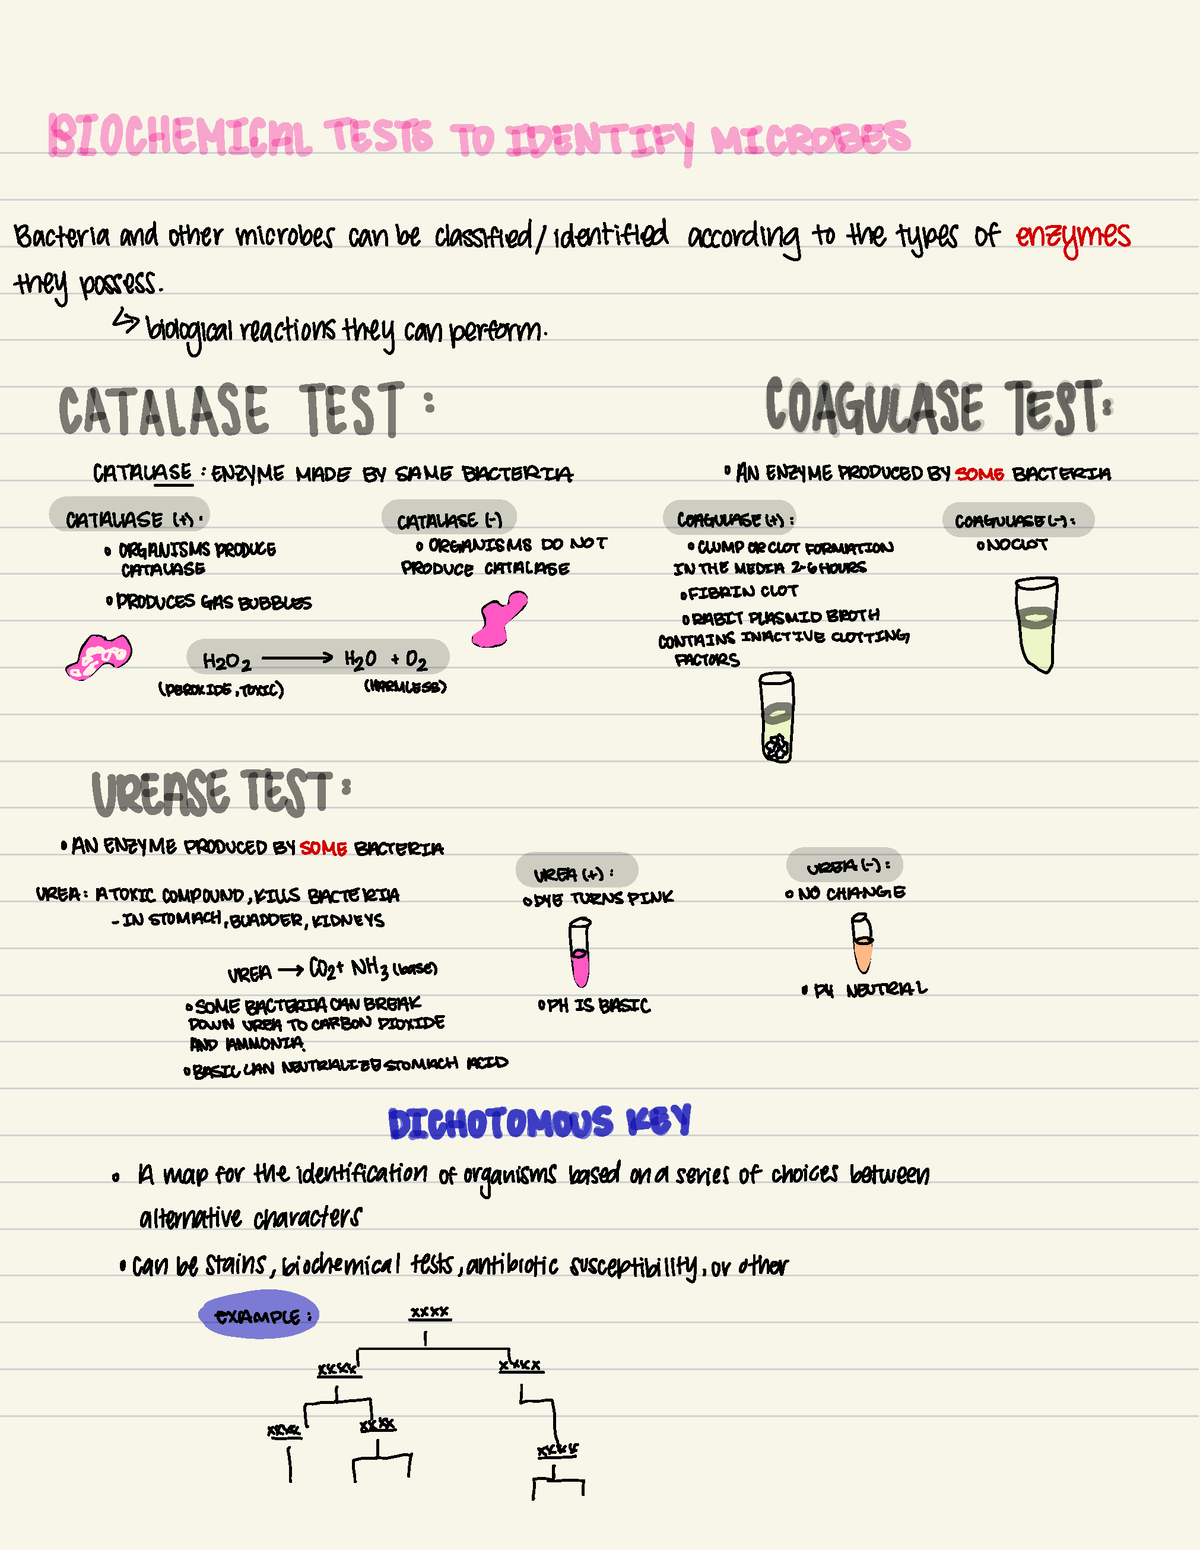 BIOCHEMICAL TESTS TO IDENTIFY MICROBES
Bacteria and other microbes can be classified/identified according to the types of enzymes
they possess.
↳ biological reactions they can perform.
CATALASE TEST:
CATALASE : ENZYME MADE BY SAME BACTERIA
CATALASE (+):
• ORGANISMS PRODUCE
CATALASE
• PRODUCES GAS BUBBLES
CATALASE (-)
• ORGANISMS DO NOT
PRODUCE CATALASE
H2O2 → H2O + O2
(PEROXIDE, TOXIC) (HARMLESS)
COAGULASE TEST:
• AN ENZYME PRODUCED BY SOME BACTERIA
COAGULASE (+):
• CLUMP OR CLOT FORMATION
IN THE MEDIA 2-6 HOURS
• FIBRIN CLOT
• RABIT PLASMID BROTH
CONTAINS INACTIVE CLOTTING
FACTORS
COAGULASE (-):
• NO CLOT
UREASE TEST:
• AN ENZYME PRODUCED BY SOME BACTERIA
UREA: A TOXIC COMPOUND, KILLS BACTERIA
- IN STOMACH, BLADDER, KIDNEYS
UREA → CO2 + NH3 (base)
• SOME BACTERIA CAN BREAK
DOWN UREA TO CARBON DIOXIDE
AND AMMONIA.
• BASIC CAN NEUTRALIZE STOMACH ACID
UREA (+):
• DYE TURNS PINK
• PH IS BASIC
UREA (-):
• NO CHANGE
• PH NEUTRAL
DICHOTOMOUS KEY
• A map for the identification of organisms based on a series of choices between
alternative characters
• can be stains, biochemical tests, antibiotic susceptibility, or other
EXAMPLE:
xxxx
xxxx xxxx
xxxx xxxx
xxxx